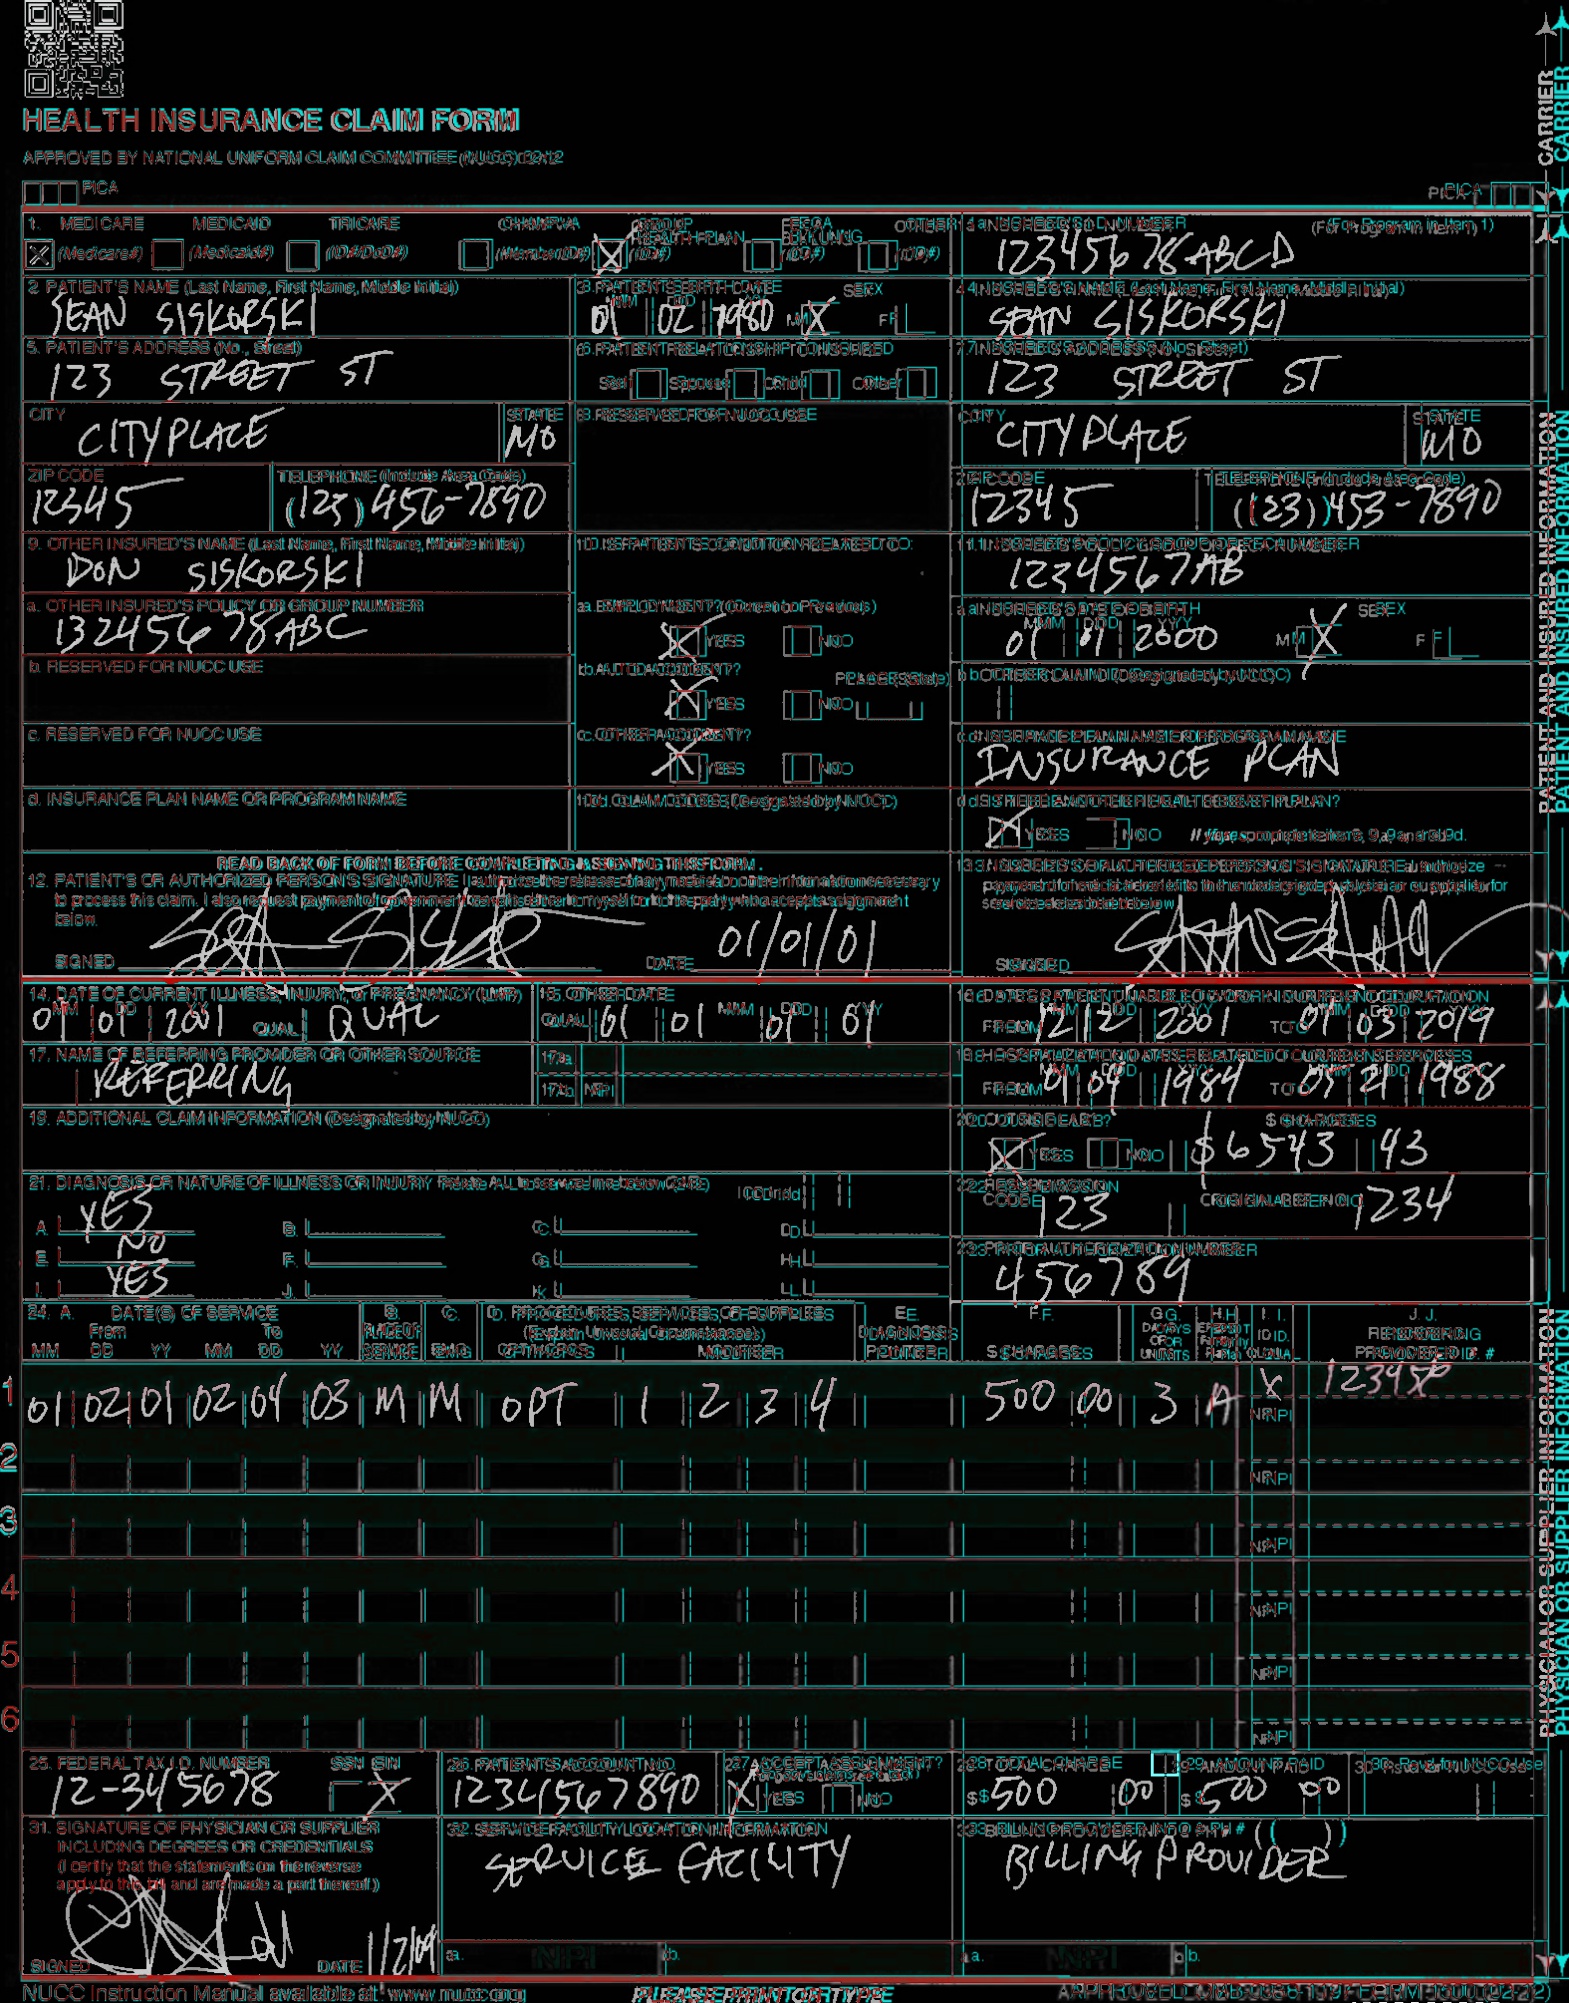 HEALTH INSURANCE CLAIM FORM
APPROVED BY NATIONAL UNIFORM CLAIM COMMITTEE (NUCC) 02/12
CARRIER
PICA
PICA
1. MEDICARE MEDICAID TRICARE CHAMPVA GROUP HEALTH PLAN FECA BLK LUNG OTHER
(Medicare#) (Medicaid#) (ID#/DoD#) (Member ID#) (ID#) (ID#) (ID#)
1a. INSURED'S I.D. NUMBER (For Program in Item 1)
12345678ABCD
2. PATIENT'S NAME (Last Name, First Name, Middle Initial)
SEAN SISKORSKI
3. PATIENT'S BIRTH DATE SEX
MM DD YY
01 02 1980 M X F
4. INSURED'S NAME (Last Name, First Name, Middle Initial)
SEAN SISKORSKI
5. PATIENT'S ADDRESS (No., Street)
123 STREET ST
6. PATIENT RELATIONSHIP TO INSURED
Self Spouse Child Other
7. INSURED'S ADDRESS (No., Street)
123 STREET ST
CITY STATE
CITYPLACE MO
8. RESERVED FOR NUCC USE
CITY STATE
CITYPLACE MO
ZIP CODE TELEPHONE (Include Area Code)
12345 (123) 456-7890
ZIP CODE TELEPHONE (Include Area Code)
12345 (123) 453-7890
9. OTHER INSURED'S NAME (Last Name, First Name, Middle Initial)
DON SISKORSKI
10. IS PATIENT'S CONDITION RELATED TO:
11. INSURED'S POLICY GROUP OR FECA NUMBER
1234567AB
a. OTHER INSURED'S POLICY OR GROUP NUMBER
13245678ABC
a. EMPLOYMENT? (Current or Previous)
YES NO
a. INSURED'S DATE OF BIRTH SEX
MM DD YY
01 01 2000 M X F
b. RESERVED FOR NUCC USE
b. AUTO ACCIDENT? PLACE (State)
YES NO
b. OTHER CLAIM ID (Designated by NUCC)
c. RESERVED FOR NUCC USE
c. OTHER ACCIDENT?
YES NO
c. INSURANCE PLAN NAME OR PROGRAM NAME
INSURANCE PLAN
d. INSURANCE PLAN NAME OR PROGRAM NAME
10d. CLAIM CODES (Designated by NUCC)
d. IS THERE ANOTHER HEALTH BENEFIT PLAN?
YES NO If yes, complete items 9, 9a and 9d.
READ BACK OF FORM BEFORE COMPLETING & SIGNING THIS FORM.
12. PATIENT'S OR AUTHORIZED PERSON'S SIGNATURE I authorize the release of any medical or other information necessary
to process this claim. I also request payment of government benefits either to myself or to the party who accepts assignment
below.
SIGNED DATE 01/01/01
13. INSURED'S OR AUTHORIZED PERSON'S SIGNATURE I authorize
payment of medical benefits to the undersigned physician or supplier for
services described below.
SIGNED
PATIENT AND INSURED INFORMATION
14. DATE OF CURRENT ILLNESS, INJURY, or PREGNANCY (LMP)
MM DD YY
01 01 2001 QUAL. QUAL
15. OTHER DATE
MM DD YY
QUAL. 01 01 01 01
16. DATES PATIENT UNABLE TO WORK IN CURRENT OCCUPATION
MM DD YY MM DD YY
FROM 12 12 2001 TO 01 03 2019
17. NAME OF REFERRING PROVIDER OR OTHER SOURCE
REFERRING
17a.
17b. NPI
18. HOSPITALIZATION DATES RELATED TO CURRENT SERVICES
MM DD YY MM DD YY
FROM 01 04 1984 TO 05 21 1988
19. ADDITIONAL CLAIM INFORMATION (Designated by NUCC)
20. OUTSIDE LAB? $ CHARGES
YES NO $6543 43
21. DIAGNOSIS OR NATURE OF ILLNESS OR INJURY Relate A-L to service line below (24E) ICD Ind.
A. YES B. C. D.
E. NO F. G. H.
I. YES J. K. L.
22. RESUBMISSION CODE ORIGINAL REF. NO.
123 1234
23. PRIOR AUTHORIZATION NUMBER
456789
24. A. DATE(S) OF SERVICE B. C. D. PROCEDURES, SERVICES, OR SUPPLIES E. F. G. H. I. J.
From To PLACE OF (Explain Unusual Circumstances) DIAGNOSIS DAYS OR EPSDT Family ID. RENDERING
MM DD YY MM DD YY SERVICE EMG CPT/HCPCS MODIFIER POINTER $ CHARGES UNITS Plan QUAL. PROVIDER ID. #
1 01 02 01 02 04 03 M M OPT 1 2 3 4 500 00 3 A X
NPI
2 NPI
3 NPI
4 NPI
5 NPI
6 NPI
PHYSICIAN OR SUPPLIER INFORMATION
25. FEDERAL TAX I.D. NUMBER SSN EIN
12-345678 X
26. PATIENT'S ACCOUNT NO.
1234567890
27. ACCEPT ASSIGNMENT?
X YES NO
28. TOTAL CHARGE
$ 500 00
29. AMOUNT PAID
$ 500 00
30. Rsvd for NUCC Use
31. SIGNATURE OF PHYSICIAN OR SUPPLIER
INCLUDING DEGREES OR CREDENTIALS
(I certify that the statements on the reverse
apply to this bill and are made a part thereof.)
SIGNED DATE 1/2/09
32. SERVICE FACILITY LOCATION INFORMATION
SERVICE FACILITY
a. NPI b.
33. BILLING PROVIDER INFO & PH # ( )
BILLING PROVIDER
a. NPI b.
NUCC Instruction Manual available at: www.nucc.org
PLEASE PRINT OR TYPE